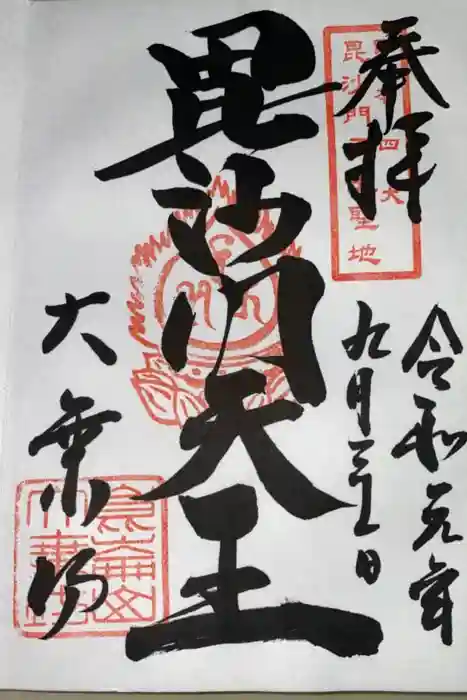 奉拝
日本四大
毘沙門天王聖地
令和元年
九月三十日
毘沙門天王
大乗坊